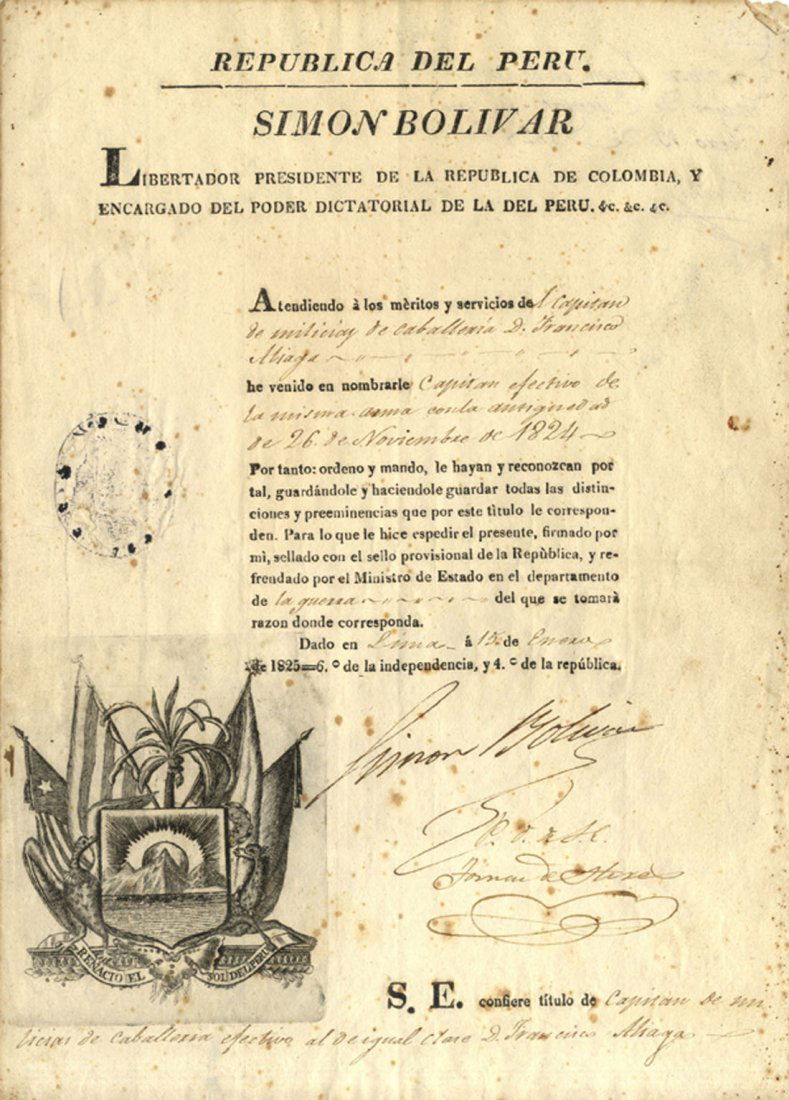 REPUBLICA DEL PERU.
SIMON BOLIVAR
LIBERTADOR PRESIDENTE DE LA REPUBLICA DE COLOMBIA, Y
ENCARGADO DEL PODER DICTATORIAL DE LA DEL PERU. &c. &c. &c.
Atendiendo à los mèritos y servicios del Capitan
de milicias de caballería D. Francisco
Aliaga
he venido en nombrarle Capitan efectivo de
la misma arma con la antiguedad
de 26 de Noviembre de 1824
Por tanto: ordeno y mando, le hayan y reconozcan por
tal, guardándole y haciendole guardar todas las distin-
ciones y preeminencias que por este tìtulo le correspon-
den. Para lo que le hice espedir el presente, firmado por
mì, sellado con el sello provisional de la Repùblica, y re-
frendado por el Ministro de Estado en el departamento
de la guerra del que se tomarà
razon donde corresponda.
Dado en Lima á 15 de Enero
de 1825=6.º de la independencia, y 4.º de la república.
Simon Bolivar
Tomas de Heres
RENACIO EL SOL DEL PERU
S. E. confiere título de Capitan de mi
licias de caballeria efectivo al de igual clase D. Francisco Aliaga